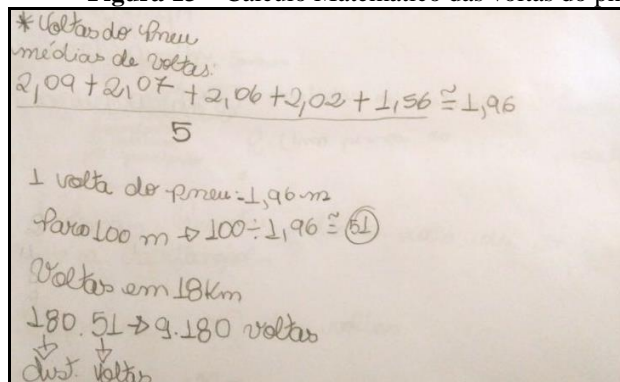 Figura 15 – Cálculo Matemático das voltas do
* Voltas do Pneu
médias de voltas:
2,09 + 2,07 + 2,06 + 2,02 + 1,56 ≅ 1,96
5
1 volta do pneu = 1,96 m
Para 100 m → 100 ÷ 1,96 ≅ 51
Voltas em 18 Km
180 . 51 → 9.180 voltas
↓ ↓
dist. Voltas